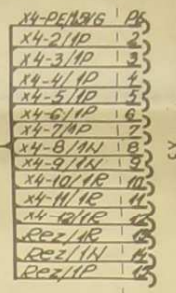 X4-2/1P 2
X4-3/1P 3
X4-4/1P 4
X4-5/1P 5
X4-6/1P 6
X4-7/1P 7
X4-8/1N 8
X4-9/1N 9
X4-10/1R 10
X4-11/1R 11
X4-12/1R 12
Rez/1R 13
Rez/1N 14
Rez/1P 15